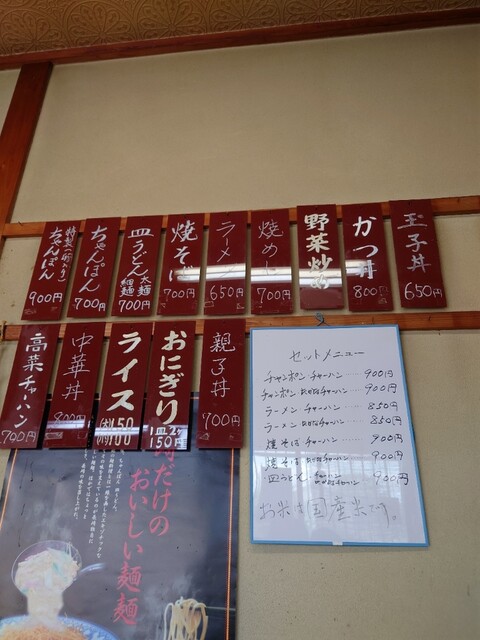 玉子丼
650円
かつ丼
800円
野菜炒め
焼めし
700円
ラーメン
650円
焼そば
700円
皿うどん
太麺
細麺
700円
ちゃんぽん
700円
特製(卵入り)
ちゃんぽん
900円
親子丼
900円
おにぎり
1皿2ケ
150円
ライス
中華丼
800円
高菜チャーハン
700円
セットメニュー
チャンポン チャーハン……900円
チャンポン 高菜チャーハン……900円
ラーメン チャーハン……850円
ラーメン 高菜チャーハン……850円
焼そば チャーハン……900円
焼そば 高菜チャーハン……900円
皿うどん チャーハン 高菜チャーハン……900円
お米は国産米です。
だけの
おいしい麺麺